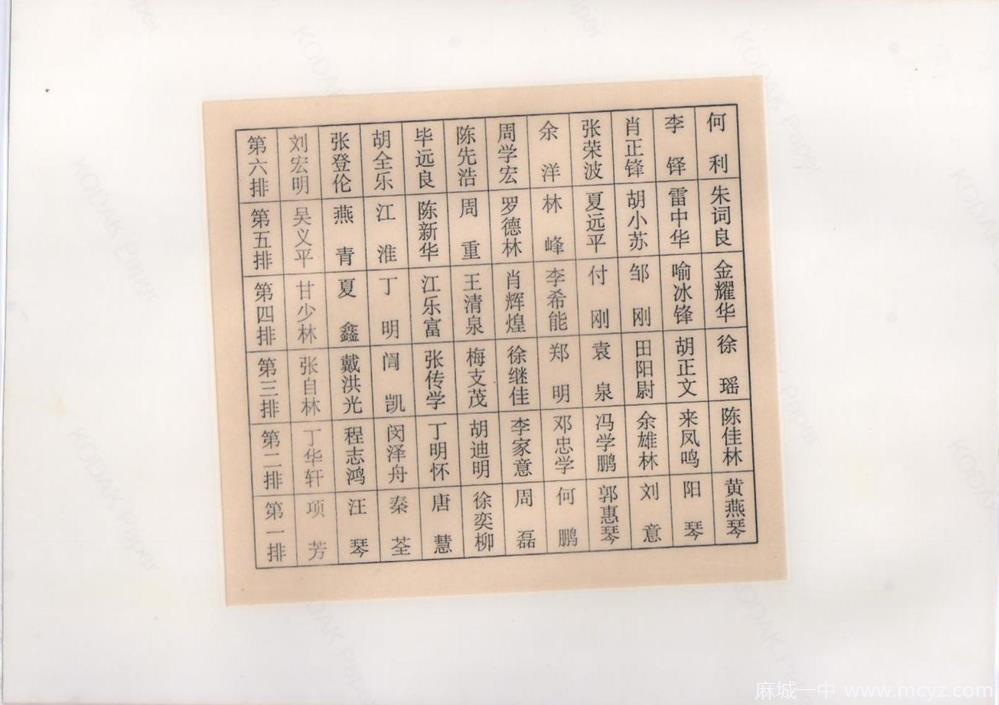 第六排 刘宏明 张登伦 胡全乐 毕远良 陈先浩 周学宏 余洋 张荣波 肖正锋 李铎 何利
第五排 吴义平 燕青 江淮 陈新华 周重 罗德林 林峰 夏远平 胡小苏 雷中华 朱词良
第四排 甘少林 夏鑫 丁明 江乐富 王清泉 肖辉煌 李希能 付刚 邹刚 喻冰锋 金耀华
第三排 张自林 戴洪光 闻凯 张传学 梅支茂 徐继佳 郑明 袁泉 田阳尉 胡正文 徐瑶
第二排 丁华轩 程志鸿 闵泽舟 丁明怀 胡迪明 李家意 邓忠学 冯学鹏 余雄林 来凤鸣 陈佳林
第一排 项芳 汪琴 秦荃 唐慧 徐奕柳 周磊 何鹏 郭惠琴 刘意 阳琴 黄燕琴
KODAK Paper
麻城一中 www.mcyz.com